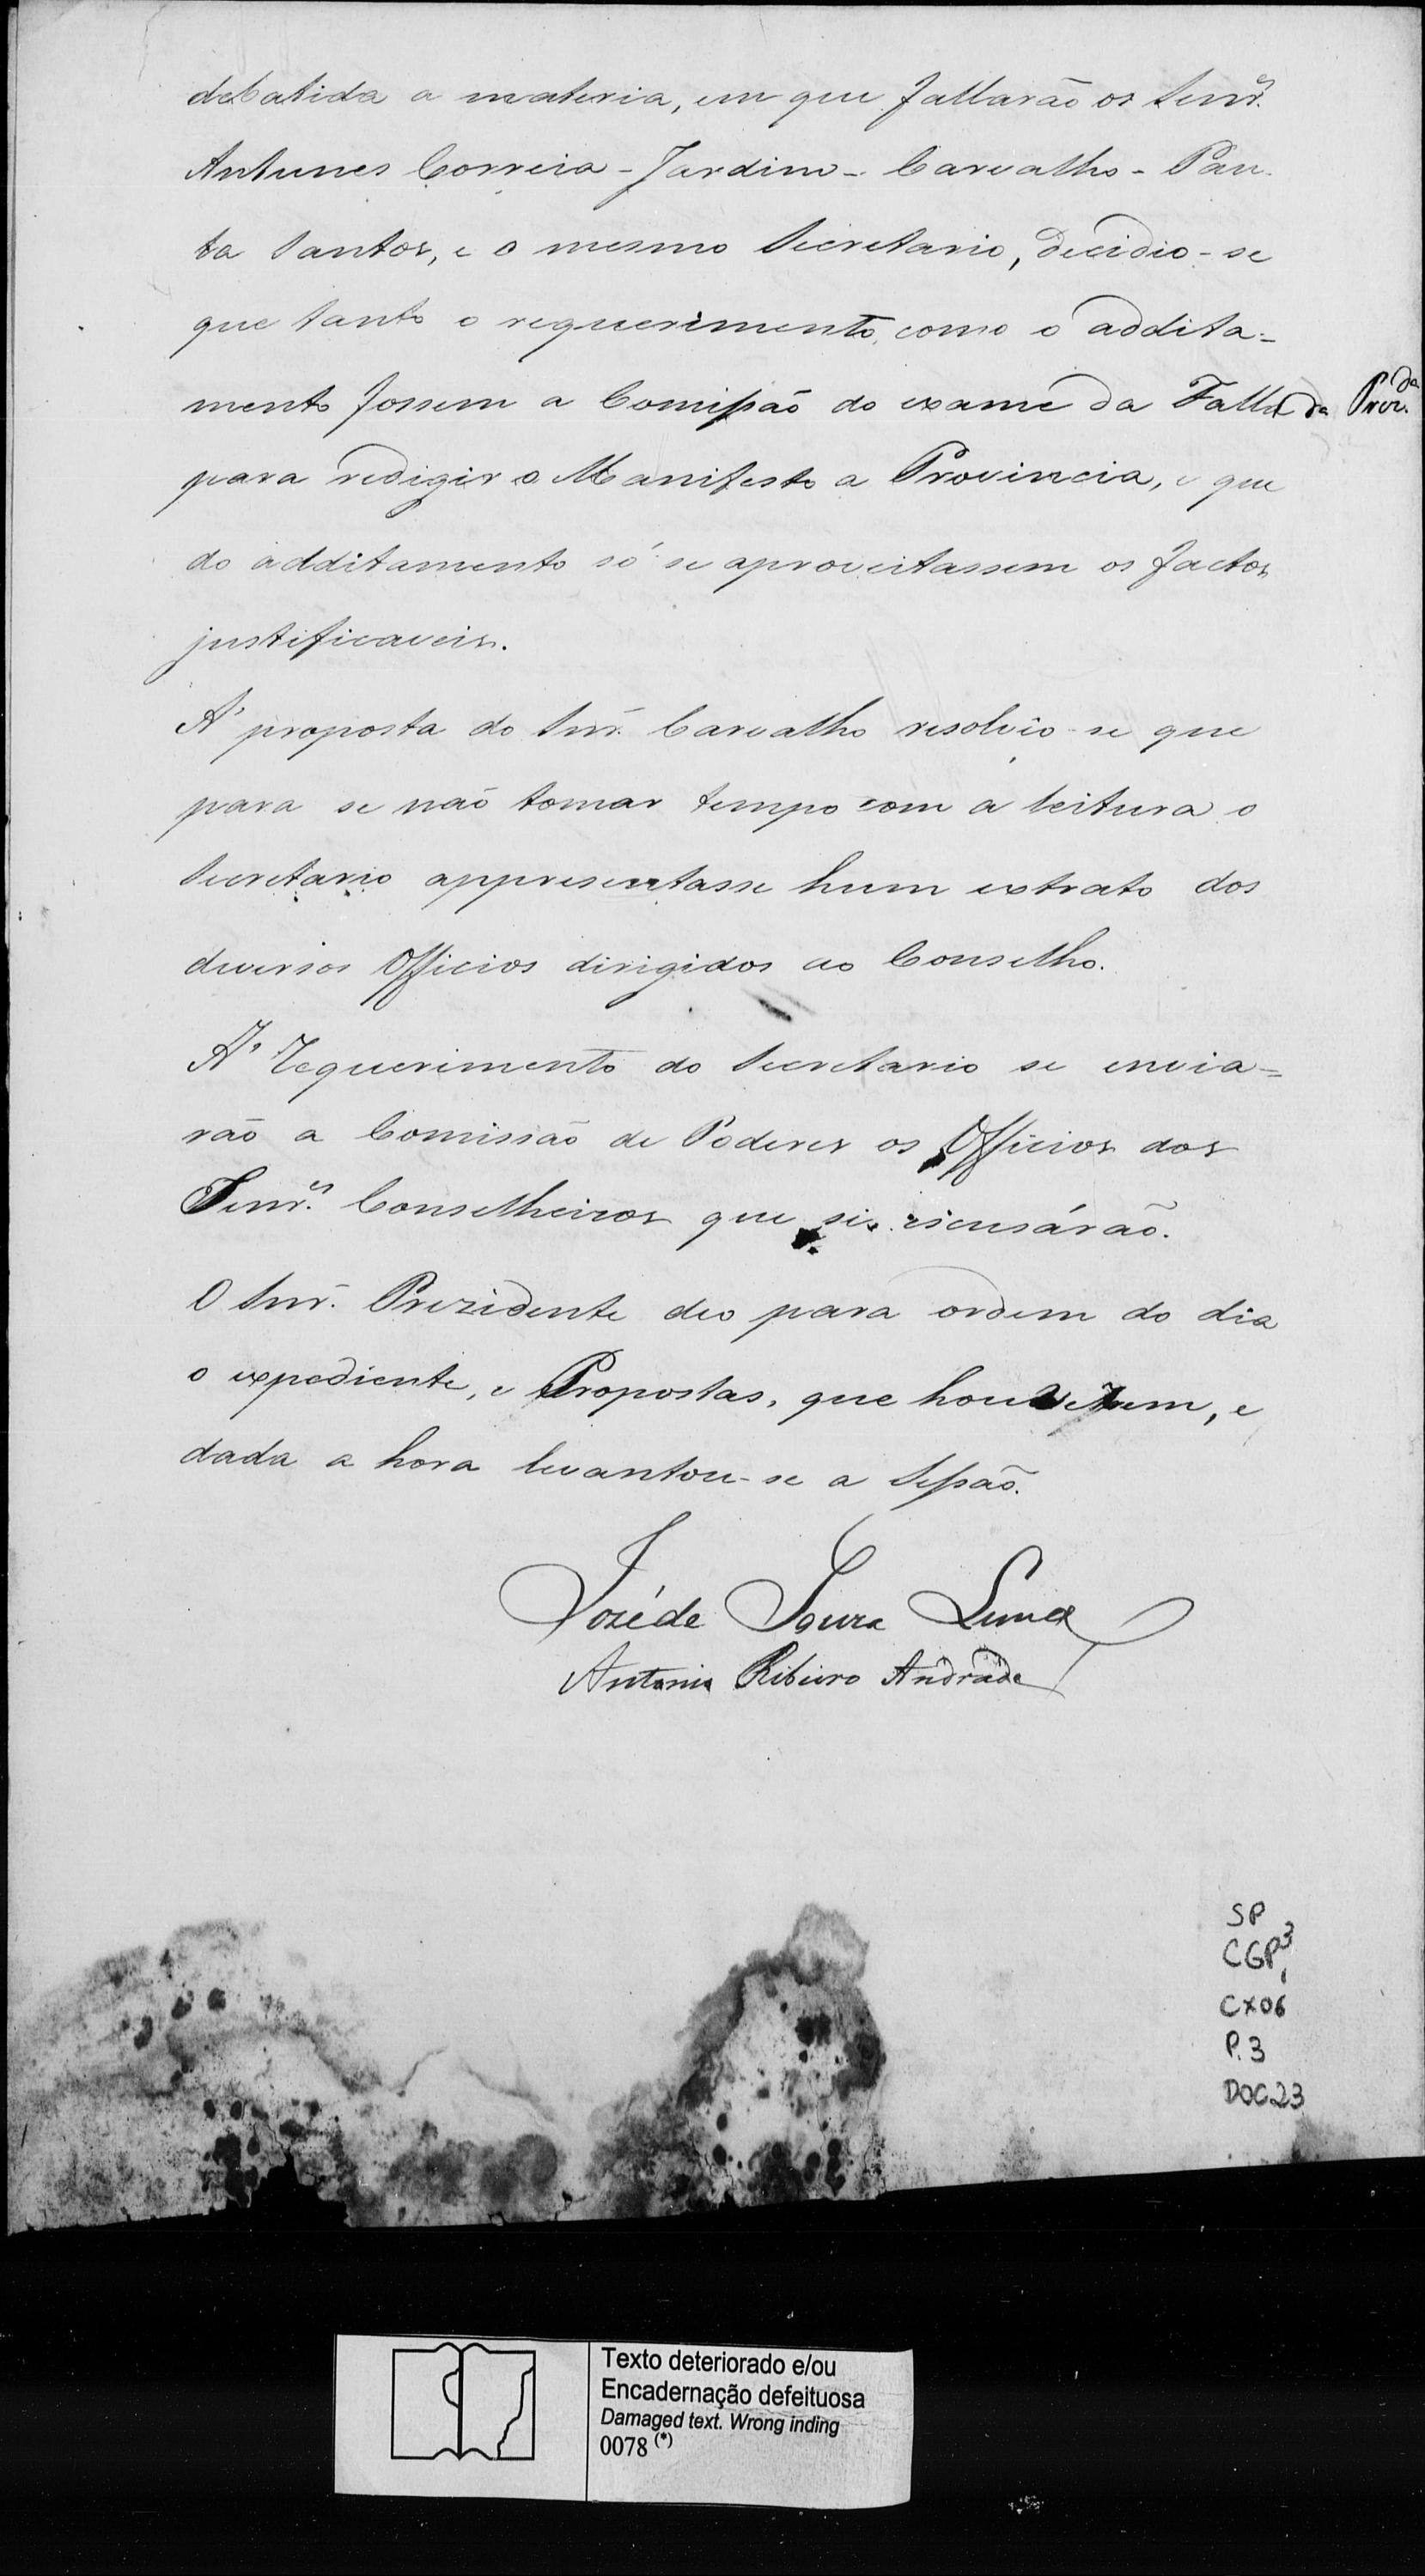 debatida a materia, em que fallarão os Senr.es
Antunes Correia - Jardim - Carvalho - Pan-
ta Santos, e o mesmo Secretario, decidio-se
que tanto o requerimento, como o addita-
mento fossem a Comissão do exame da Falla da Prez.da
para redigir o Manifesto a Provincia, e que
do additamento só se aproveitassem os factos
justificaveis.
A' proposta do Snr. Carvalho resolvêo-se que
para se não tomar tempo com a leitura o
Secretario appresentasse hum extrato dos
diversos Officios dirigidos ao Conselho.
A' Requerimento do Secretario se envia-
rão a Comissão de Poderes os Officios dos
Senr.es Conselheiros que se escusárão.
O Snr. Prezidente deo para ordem do dia
o expediente, e Propostas, que houverem, e
dada a hora levantou-se a Sessão.
José de Souza Lima
Antonio Ribeiro Andrade
SP
CGP3,
CX06
P.3
DOC23
Texto deteriorado e/ou
Encadernação defeituosa
Damaged text. Wrong inding
0078 (*)